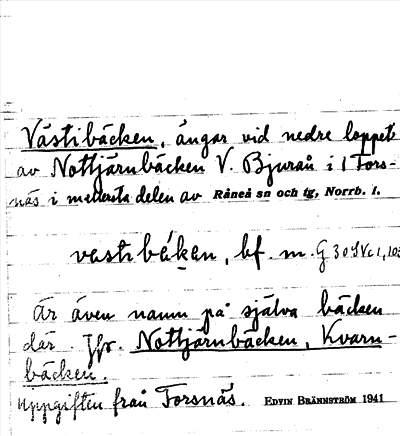 Västibäcken, ängar vid nedre loppet
av Nottjärnbäcken V. Bjuraå i 1 Fors-
näs i mellersta delen av Råneå sn och tg, Norrb. l.
vastibäḱen, bf. m. G 30 S Vc 1, 103
Är även namn på själva bäcken
där. Jfr. Nottjärnbäcken, Kvarn-
bäcken.
Uppgiften från Forsnäs. EDVIN BRÄNNSTRÖM 1941